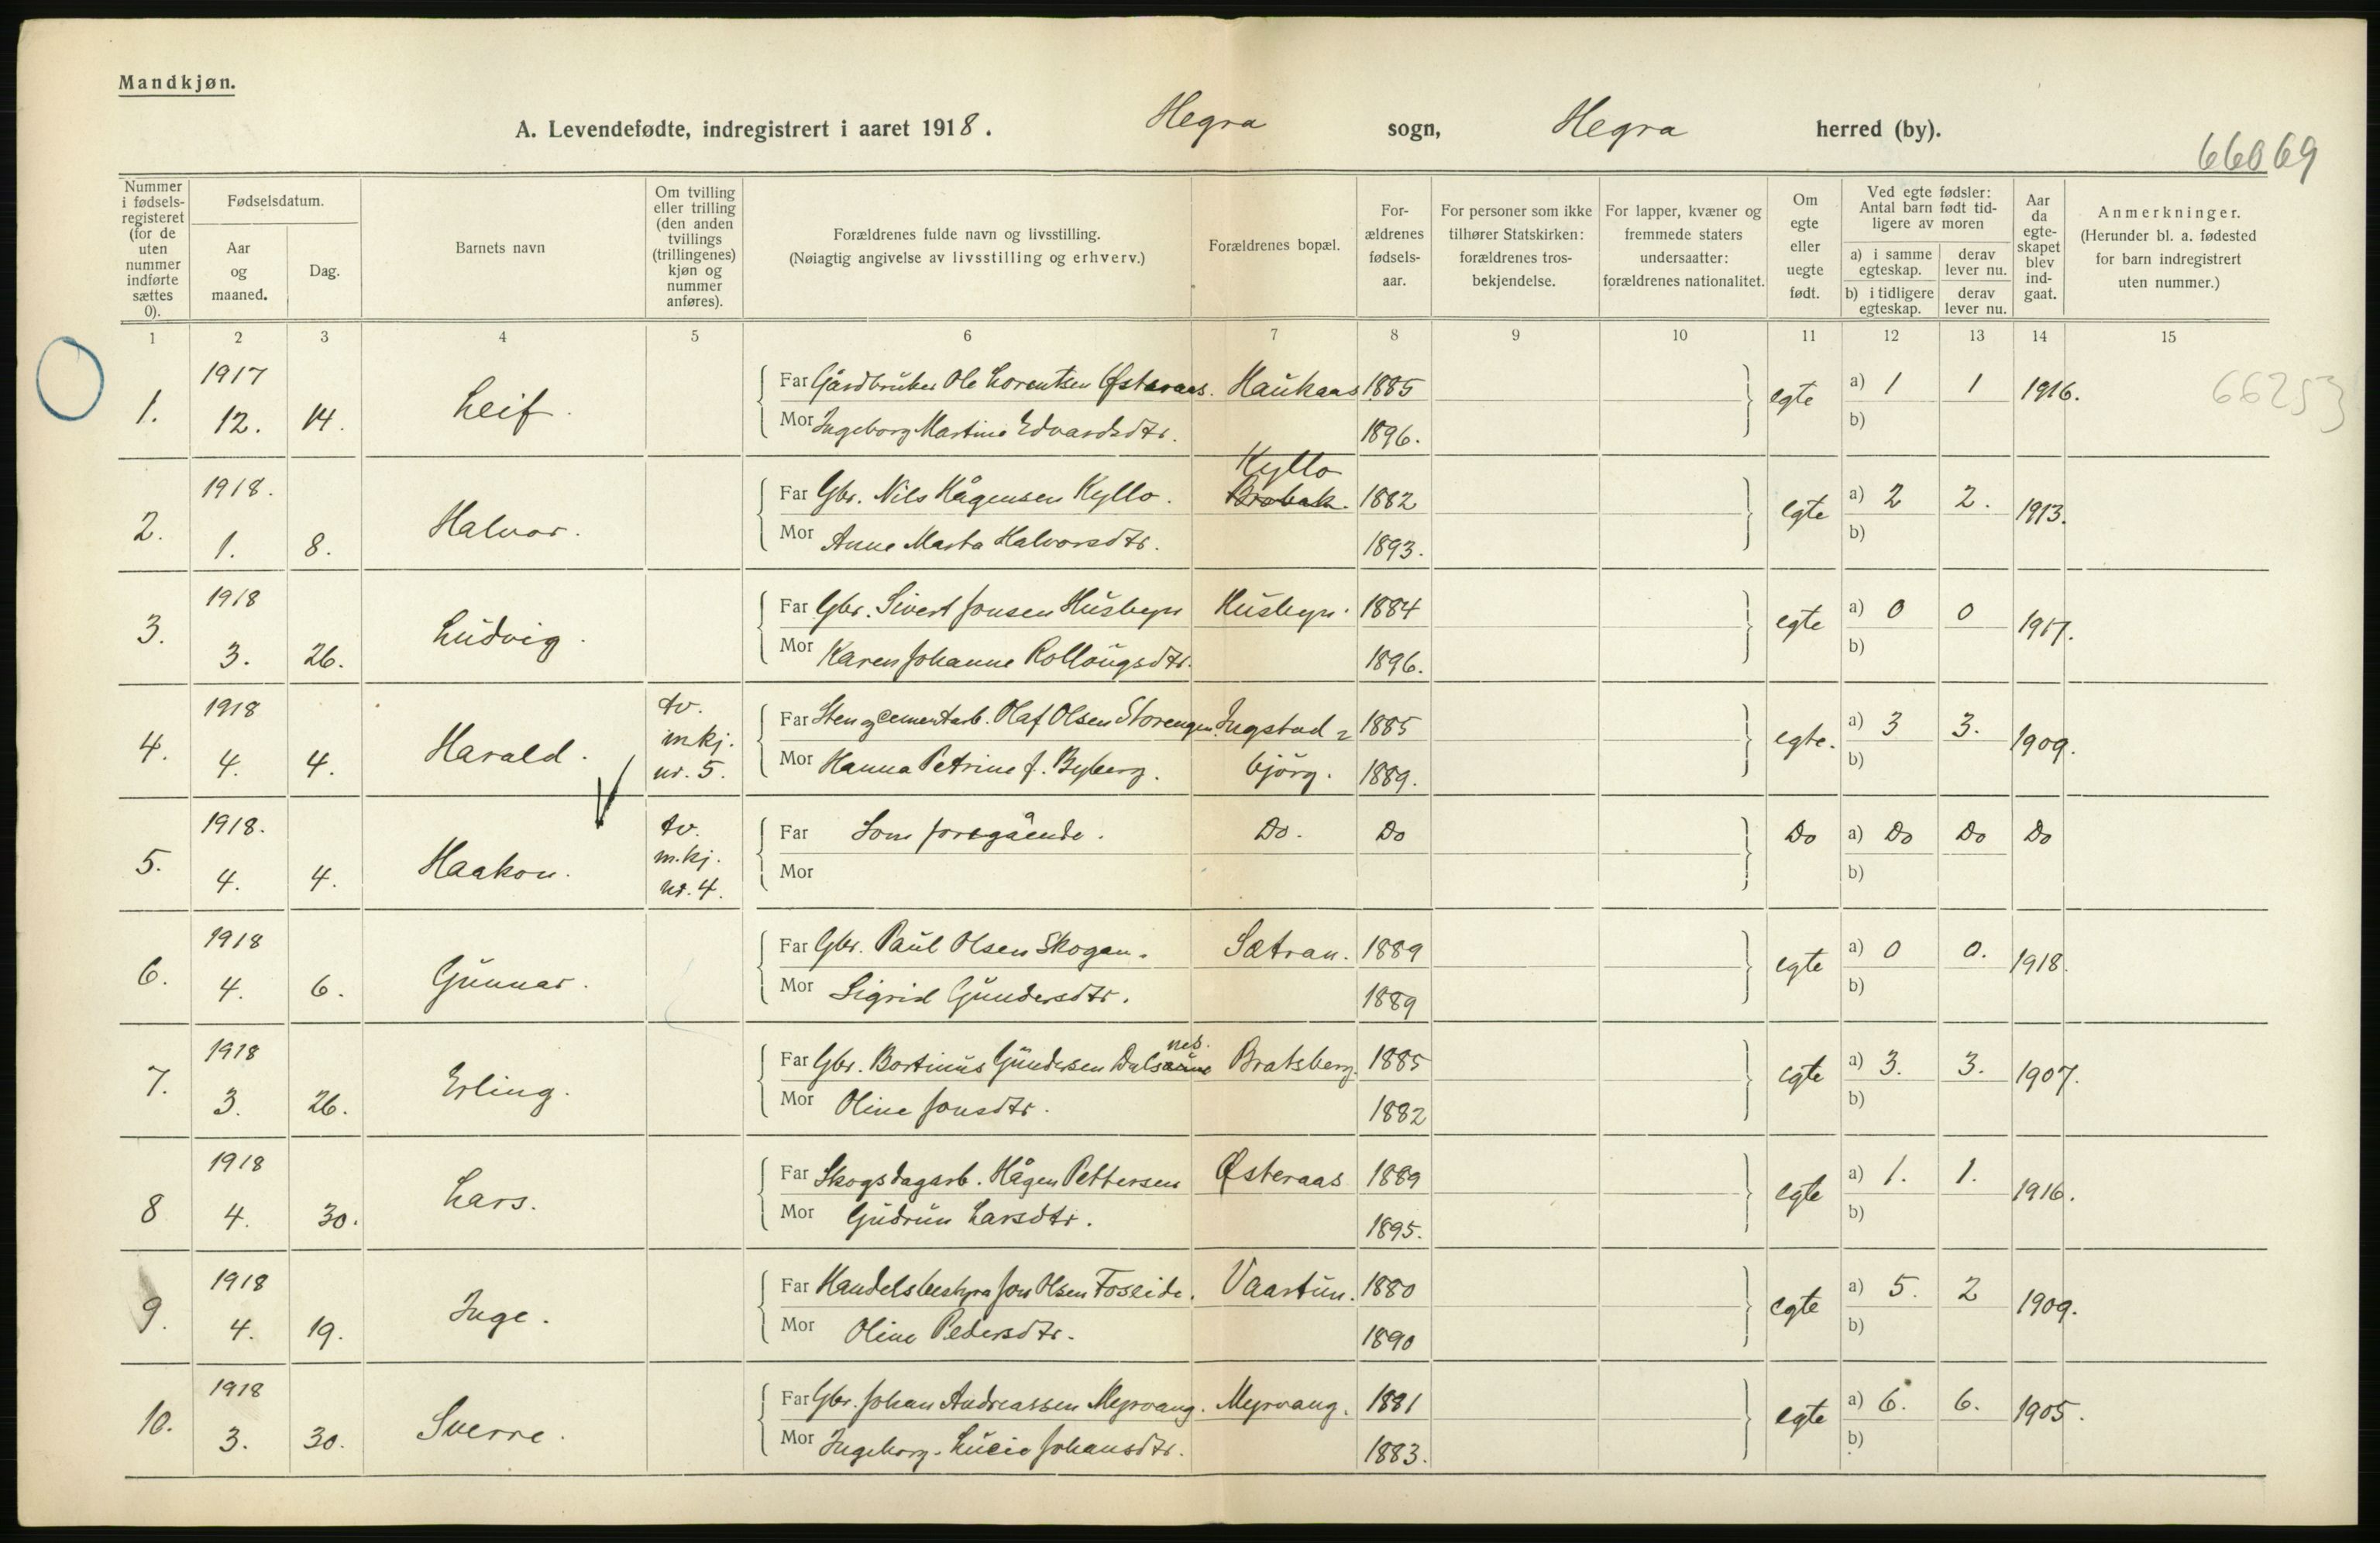 Mandkjøn.
A. Levendefødte, indregistrert i aaret 1918. Hegra sogn, Hegra herred (by).
66069
Nummer i fødsels-registeret (for de uten nummer indførte sættes 0).
Fødselsdatum.
Aar og maaned.
Dag.
Barnets navn
Om tvilling eller trilling (den anden tvillings (trillingenes) kjøn og nummer anføres).
Forældrenes fulde navn og livsstilling.
(Nøiagtig angivelse av livsstilling og erhverv.)
Forældrenes bopæl.
For-ældrenes fødsels-aar.
For personer som ikke tilhører Statskirken: forældrenes tros-bekjendelse.
For lapper, kvæner og fremmede staters undersaatter: forældrenes nationalitet.
Om egte eller uegte født.
Ved egte fødsler: Antal barn født tid-ligere av moren
a) i samme egteskap.
derav lever nu.
b) i tidligere egteskap.
derav lever nu.
Aar da egte-skapet blev ind-gaat.
Anmerkninger.
(Herunder bl. a. fødested for barn indregistrert uten nummer.)
1 2 3 4 5 6 7 8 9 10 11 12 13 14 15
1. 1917 12. 14. Leif.
Far Gårdbruker Ole Lorentsen Østeraas. Haukaas 1885 egte a) 1 1 1916.
66253
Mor Ingeborg Martine Edvardsdtr. 1896. b)
2. 1918. 1. 8. Halvor.
Kyllo
Far Gbr. Nils Hågensen Kyllo. Brobak. 1882 egte a) 2 2. 1913.
Mor Anne Marta Halvorsdtr. 1893. b)
3. 1918 3. 26. Ludvig.
Far Gbr. Sivert Jonsen Husbyn Husbyn. 1884 egte a) 0 0 1917.
Mor Karen Johanne Rollougsdtr. 1896. b)
4. 1918 4. 4. Harald. tv. mkj. nr. 5.
Far Sten og cementarb. Olaf Olsen Storengen. Ingstad= 1885 egte. a) 3 3. 1909.
Mor Hanna Petrine f. Byberg. bjørg. 1889. b)
5. 1918. 4. 4. Haakon. tv. m.kj. nr. 4.
Far Som foregående. Do. Do Do a) Do Do Do
Mor b)
6. 1918 4. 6. Gunnar.
Far Gbr. Paul Olsen Skogan. Sætran. 1889 egte a) 0 0. 1918.
Mor Sigrid Gundersdtr. 1889 b)
7. 1918 3. 26. Erling.
nes.
Far Gbr. Bortinus Gundersen Dalsaune Bratsberg. 1885 egte a) 3. 3. 1907.
Mor Oline Jonsdtr. 1882 b)
8 1918 4. 30. Lars.
Far Skogsdagarb. Hågen Pettersen Østeraas 1889 egte a) 1. 1. 1916.
Mor Gudrun Larsdtr. 1895. b)
9. 1918 4. 19. Inge.
Far Handelsbestyra Jon Olsen Foseide. Vaartun. 1880 egte a) 5. 2 1909.
Mor Oline Pedersdtr. 1890 b)
10. 1918 3. 30. Sverre.
Far Gbr. Johan Andreassen Myrvang. Myrvang. 1881 egte a) 6. 6. 1905.
Mor Ingeborg Lucie Johansdtr. 1883. b)